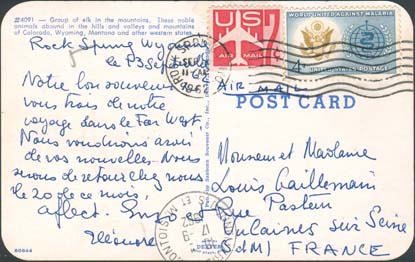 24091 — Group of elk in the mountains. These noble
animals abound in the hills and valleys and mountains
of Colorado, Wyoming, Montana and other western states.
Rock Spring Wyoming
le 13 Sept 62
Notre bon souvenir
vous trois de notre
voyage dans le Far West.
Nous voudrions avoir
de vos nouvelles. Nous
serons de retour chez nous
le 20 de ce mois,
Affect.
Eléonore
60644
US
AIR MAIL
THE WORLD UNITED AGAINST MALARIA
UNITED STATES POSTAGE
4¢
AIR MAIL
POST CARD
DEXTER
Monsieur et Madame
Louis Gaillemain
Rue Pasteur
Vulaines sur Seine
S&M FRANCE